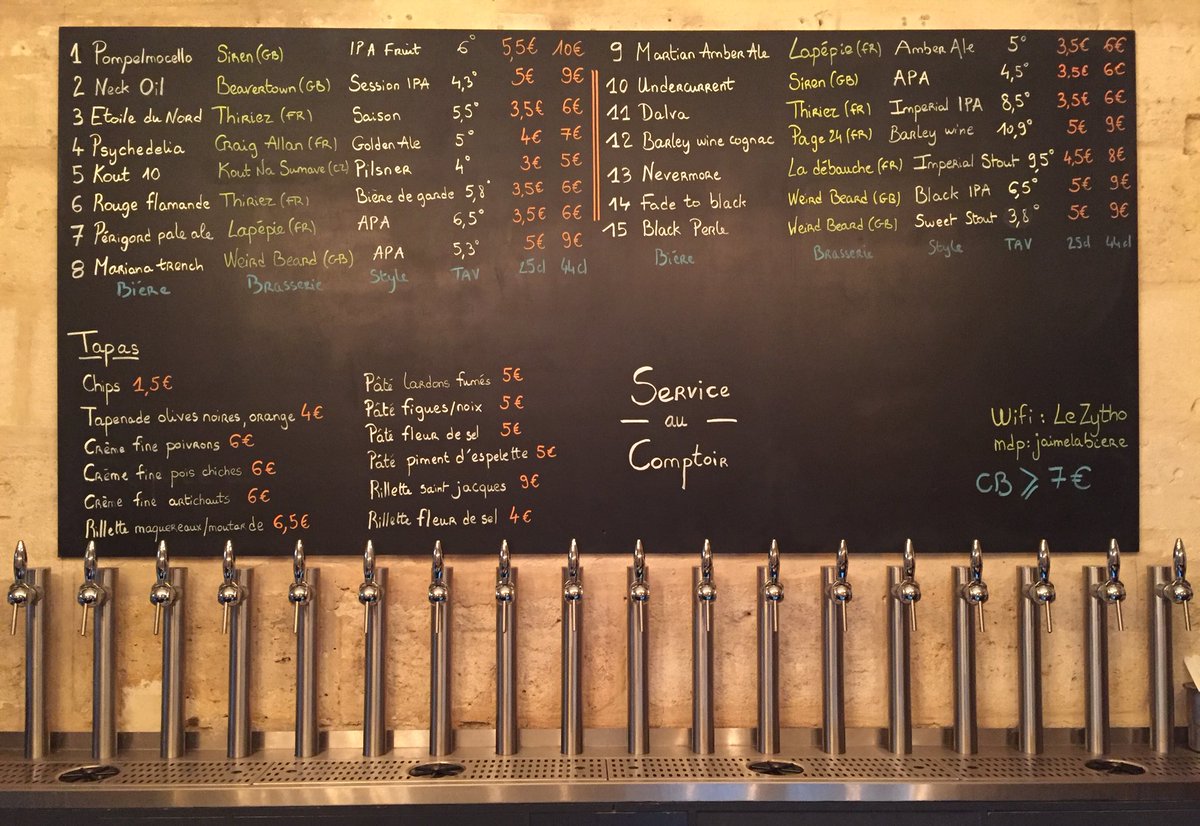 1 Pompelmocello Siren (GB) IPA Fruit 6° 5,5€ 10€
2 Neck Oil Beavertown (GB) Session IPA 4,3° 5€ 9€
3 Etoile du Nord Thiriez (FR) Saison 5,5° 3,5€ 6€
4 Psychedelia Craig Allan (FR) Golden Ale 5° 4€ 7€
5 Kout 10 Kout Na Sumave (CZ) Pilsner 4° 3€ 5€
6 Rouge flamande Thiriez (FR) Bière de garde 5,8° 3,5€ 6€
7 Périgond pale ale Lapépie (FR) APA 6,5° 3,5€ 6€
8 Mariana trench Weird Beard (GB) APA 5,3° 5€ 9€
Bière Brasserie Style TAV 25cl 44cl
9 Martian Amber Ale Lapépie (FR) Amber Ale 5° 3,5€ 6€
10 Undercurrent Siren (GB) APA 4,5° 3,5€ 6€
11 Dalva Thiriez (FR) Imperial IPA 8,5° 3,5€ 6€
12 Barley wine cognac Page 24 (FR) Barley wine 10,9° 5€ 9€
13 Nevermore La débauche (FR) Imperial Stout 9,5° 4,5€ 8€
14 Fade to black Weird Beard (GB) Black IPA 6,5° 5€ 9€
15 Black Perle Weird Beard (GB) Sweet Stout 3,8° 5€ 9€
Bière Brasserie Style TAV 25cl 44cl
Tapas
Chips 1,5€
Tapenade olives noires, orange 4€
Crème fine poivrons 6€
Crème fine pois chiches 6€
Crème fine artichauts 6€
Rillette maquereaux/moutarde 6,5€
Pâté lardons fumés 5€
Pâté figues/noix 5€
Pâté fleur de sel 5€
Pâté piment d'espelette 5€
Rillette saint jacques 9€
Rillette fleur de sel 4€
Service
— au —
Comptoir
Wifi : Le Zytho
mdp: jaimelabiere
CB ⩾ 7€